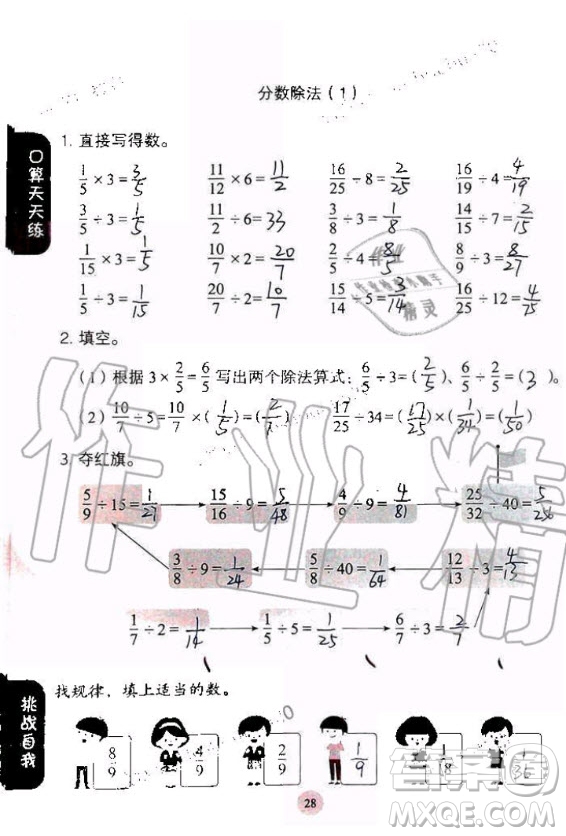 分数除法(1)
口算天天练
1. 直接写得数。
1/5 × 3 = 3/5 11/12 × 6 = 11/2 16/25 ÷ 8 = 2/25 16/19 ÷ 4 = 4/19
3/5 ÷ 3 = 1/5 11/2 ÷ 6 = 33 3/8 ÷ 3 = 1/8 14/15 ÷ 7 = 2/15
1/15 × 3 = 1/5 10/7 × 2 = 20/7 2/5 ÷ 4 = 8/5 8/9 ÷ 3 = 8/27
1/5 ÷ 3 = 1/15 20/7 ÷ 2 = 10/7 15/14 ÷ 5 = 3/14 16/25 ÷ 12 = 4/75
2. 填空。
(1) 根据 3 × 2/5 = 6/5 写出两个除法算式: 6/5 ÷ 3 = (2/5)、6/5 ÷ 2/5 = (3)。
(2) 10/7 ÷ 5 = 10/7 × (1/5) = (2/7) 17/25 ÷ 34 = (17/25) × (1/34) = (1/50)
3. 夺红旗。
5/9 ÷ 15 = 1/27 15/16 ÷ 9 = 5/48 4/9 ÷ 9 = 4/81 25/32 ÷ 40 = 5/256
3/8 ÷ 9 = 1/24 5/8 ÷ 40 = 1/64 12/13 ÷ 3 = 4/13
1/7 ÷ 2 = 1/14 1/5 ÷ 5 = 1/25 6/7 ÷ 3 = 2/7
挑战自我
找规律,填上适当的数。
8/9 4/9 2/9 1/9 1/18 1/36
28
作业精灵
答案圈
MXQE.COM